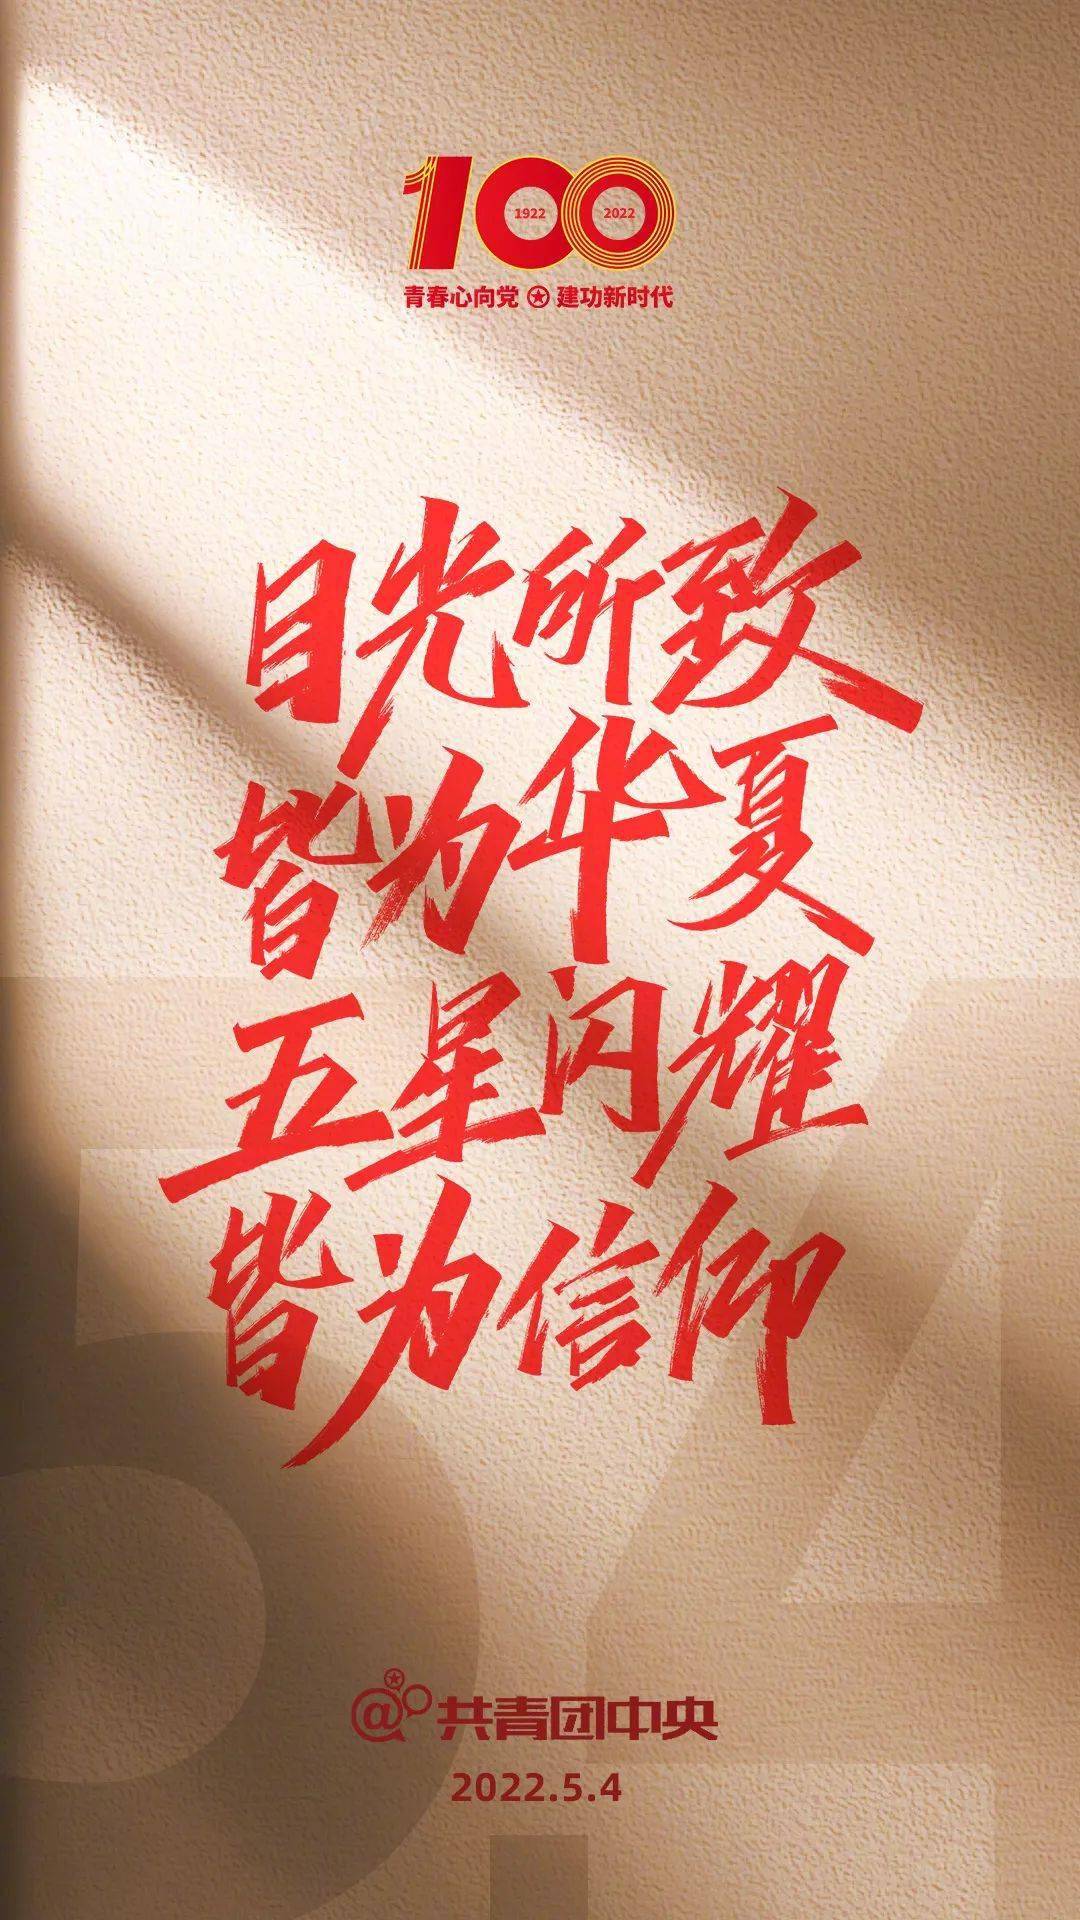 100
1922 2022
青春心向党 建功新时代
目光所致
皆为华夏
五星闪耀
皆为信仰
@共青团中央
2022.5.4
5.4